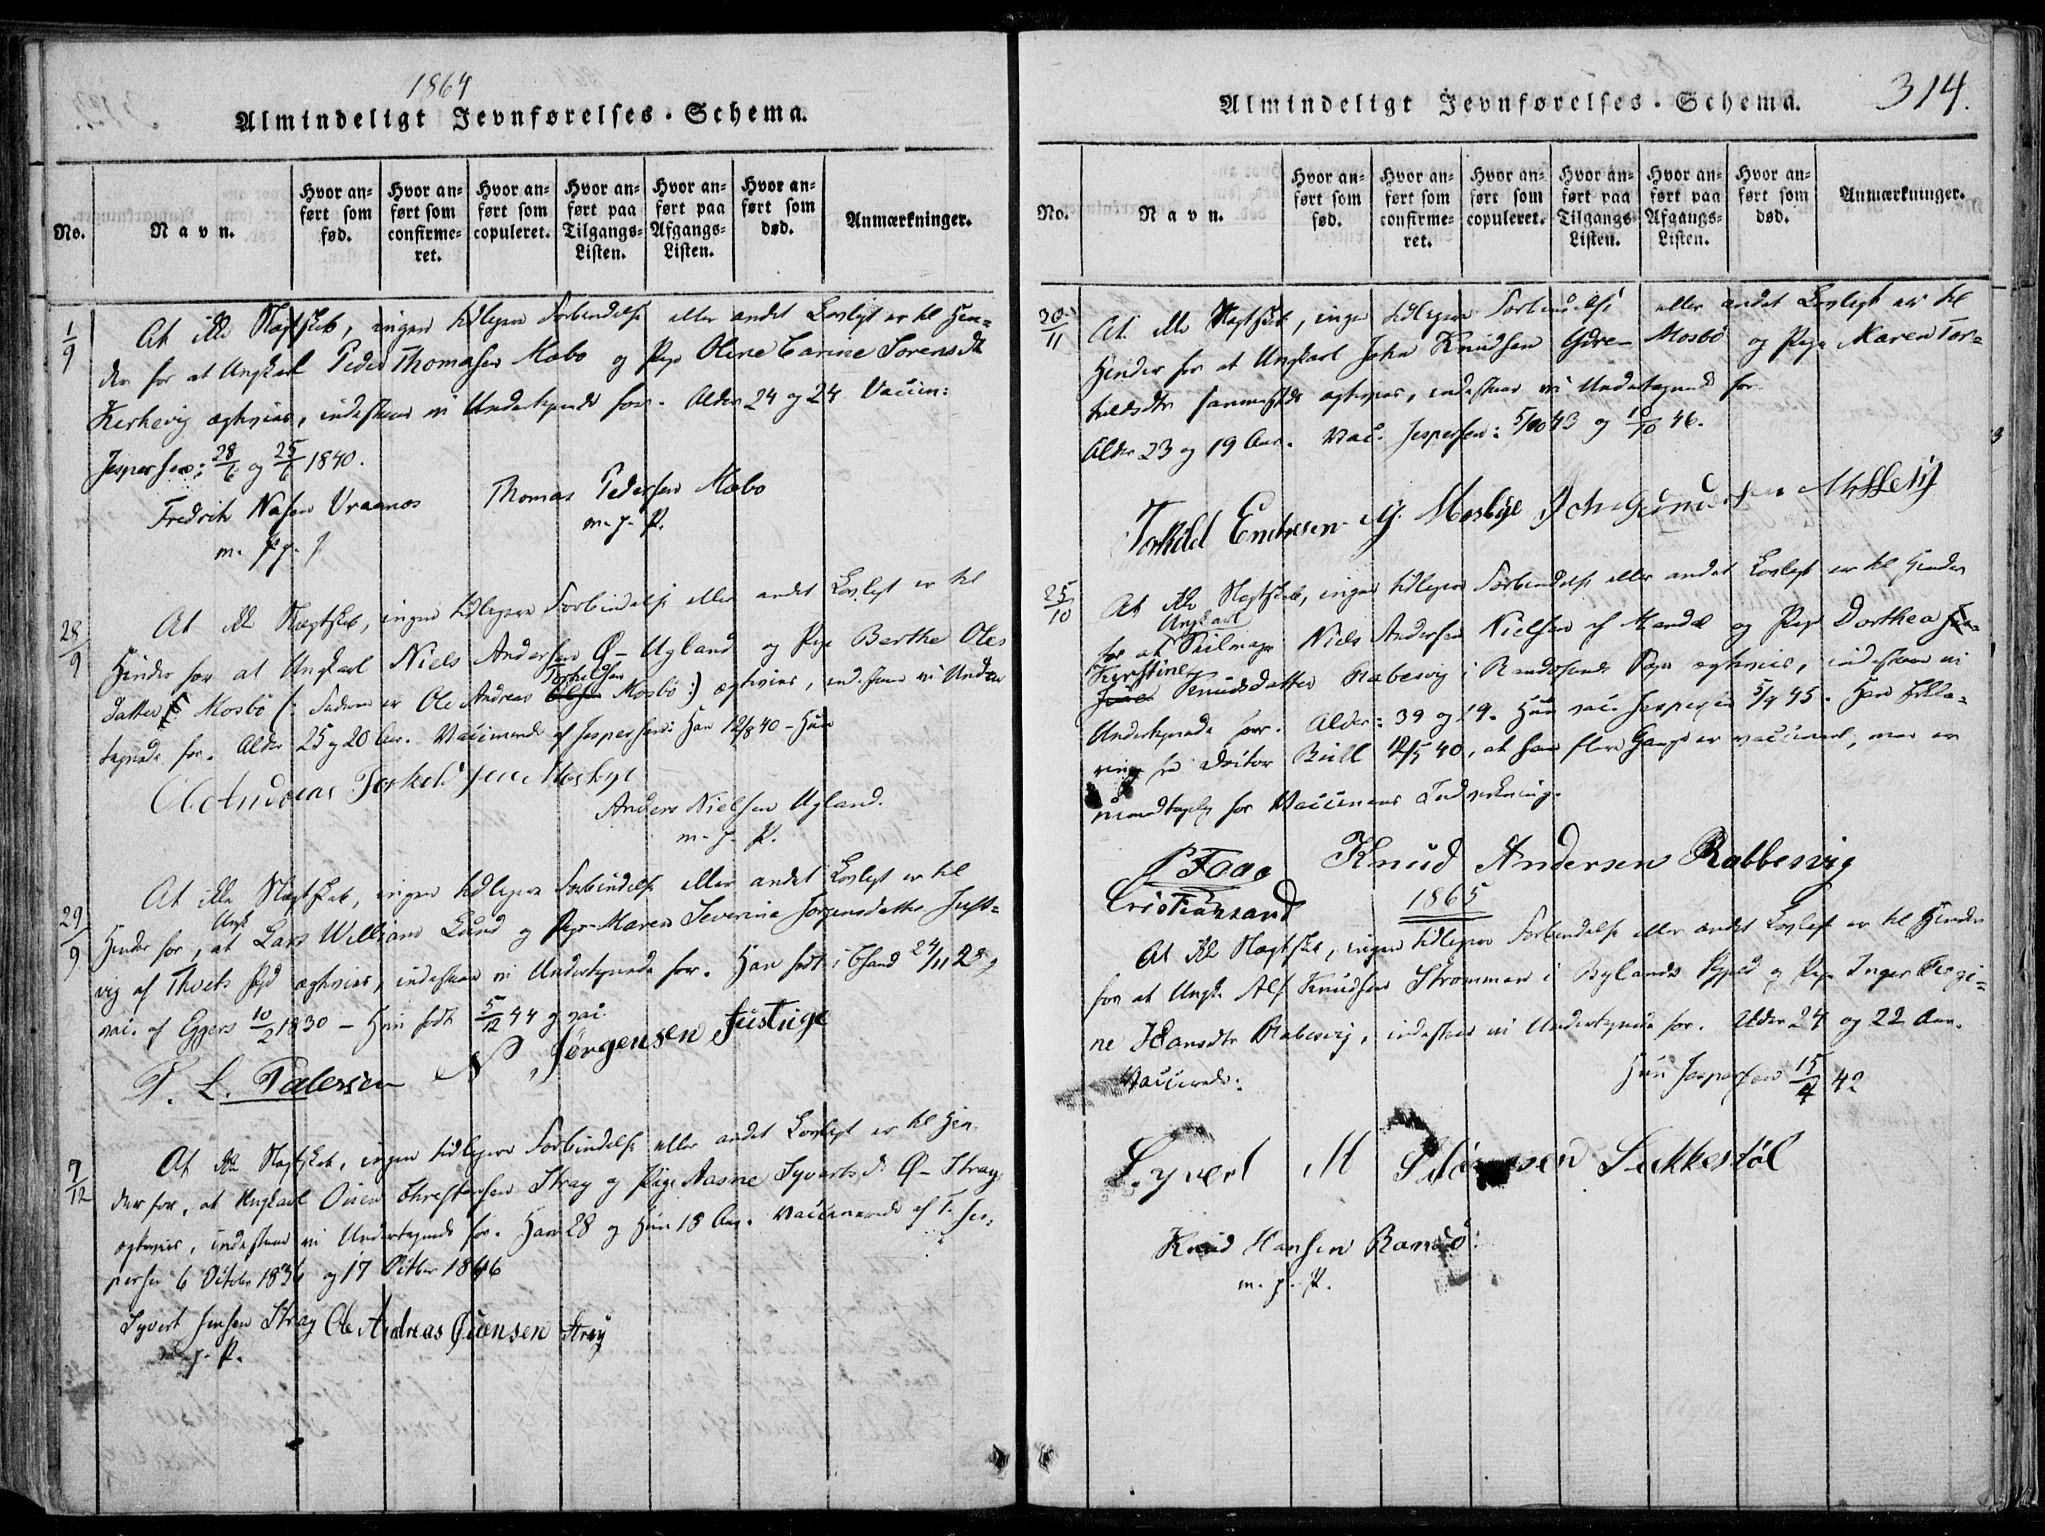 1864
Almindeligt Jevnførelses-Schema.
No.
Navn.
Hvor an-
ført som
fød.
Hvor an-
ført som
confirme-
ret.
Hvor an-
ført som
copuleret.
Hvor an-
ført paa
Tilgangs-
Listen.
Hvor an-
ført paa
Afgangs-
Listen.
Hvor an-
ført som
død.
Anmærkninger.
1/9
At ikke Slægtskab, ingen tidligere Forbindelse eller andet Lovligt er til Hin-
der for at Ungkarl Peder Thomasen Mæbø og Pige Oline Carine Sørensdt
Kirkevig ægtevies, indestaae vi Undertegnede for. Alder 24 og 24 Vaccin:
Jespersen: 28/6 og 25/6 1840.
Fredrik Thomas Pedersen Mæbø
m. p. P.
28/9
At ikke Slægtskab, ingen tidligere Forbindelse eller andet Lovligt er til
Hinder for at Ungkarl Niels Andersen Ø-Ugland og Pige Berthe Oles
datter Mosbø (: Faderen er Ole Andreas Torkelsen Mosbø:) ægtevies, indestaae vi Under
tegnede for. Alder 25 og 20 Aar. Vaccinerede af Jespersen: Han 12/8 40 - Hun
Ole Andreas Torkelsen Mosbye
Anders Nielsen Ugland.
m. p. P.
29/9
At ikke Slægtskab, ingen tidligere Forbindelse eller andet Lovligt er til
Hinder for, at Ungk Lars William Lund og Pige Maren Severine Jørgensdatter Just-
vig af Tveits Pgd ægtevies, indestaae vi Undertegnede for. Han født i Chsand 24/11 28 og
vac. af Eggers 10/2 1830 - Hun født 5/12 44 og vac.
P. L. N Jørgensen Justvig
7/12
At ikke Slægtskab, ingen tidligere Forbindelse eller andet Lovligt er til Hin
der for, at Ungkarl Ouen Christensen Stray og Pige Aasne Syvertsd. Ø-Stray
ægtevies, indestaae vi Undertegnede for. Han 28 og Hun 18 Aar. Vaccinerede af T. Jes-
persen 6 Octobr 1836 og 17 Octbr 1846
Syvert Jensen Stray Ole Andreas Øuensen Stray
m. p. P.
314.
Almindeligt Jevnførelses-Schema.
No.
Navn.
Hvor an-
ført som
fød.
Hvor an-
ført som
confirme-
ret.
Hvor an-
ført som
copuleret.
Hvor an-
ført paa
Tilgangs-
Listen.
Hvor an-
ført paa
Afgangs-
Listen.
Hvor an-
ført som
død.
Anmærkninger.
30/11
At ikke Slægtskab, ingen tidligere Forbindelse eller andet Lovligt er til
Hinder for at Ungkarl John Knudsen Mosbø og Pige Maren Tor-
kildsdtr sammesteds ægtevies, indestaae vi Undertegnede for.
Alder 23 og 19 Aar. Vac. Jespersen: 5/10 43 og 10/10 46.
Torkild Endresen Mosbye
25/10
At ikke Slægtskab, ingen tidligere Forbindelse eller andet Lovligt er til Hinder
Ungkarl
for at Seilmager Niels Andersen Nielsen af Mandal og Pige Dorthea
Kirstine Knudsdatter Rabesvig i Randøsunds Sogn ægtevies, indestaae vi
Undertegnede for. Alder: 39 og 19. Hun vac. Jespersen 5/9 45. Han Erklæ-
ring fra Doctor Bull 12/5 40, at han flere Gange er vaccineret, men er
uimodtagelig for Vaccinens Indvirkning.
Knud Andersen Rabbesvig
Cristiansand
1865
At ikke Slægtskab, ingen tidligere Forbindelse eller andet Lovligt er til Hinder
for at Ungk. Alf Knudsen Strømmen i Byglands Pgjeld og Pige Inger Regi-
ne Hansdtr Rabesvig, indestaae vi Undertegnede for. Alder 24 og 22 Aar.
Vaccinerede: Hun Jespersen 15/4 42
Syvert M Sukkestøl
Knud Hansen
m. p. P.